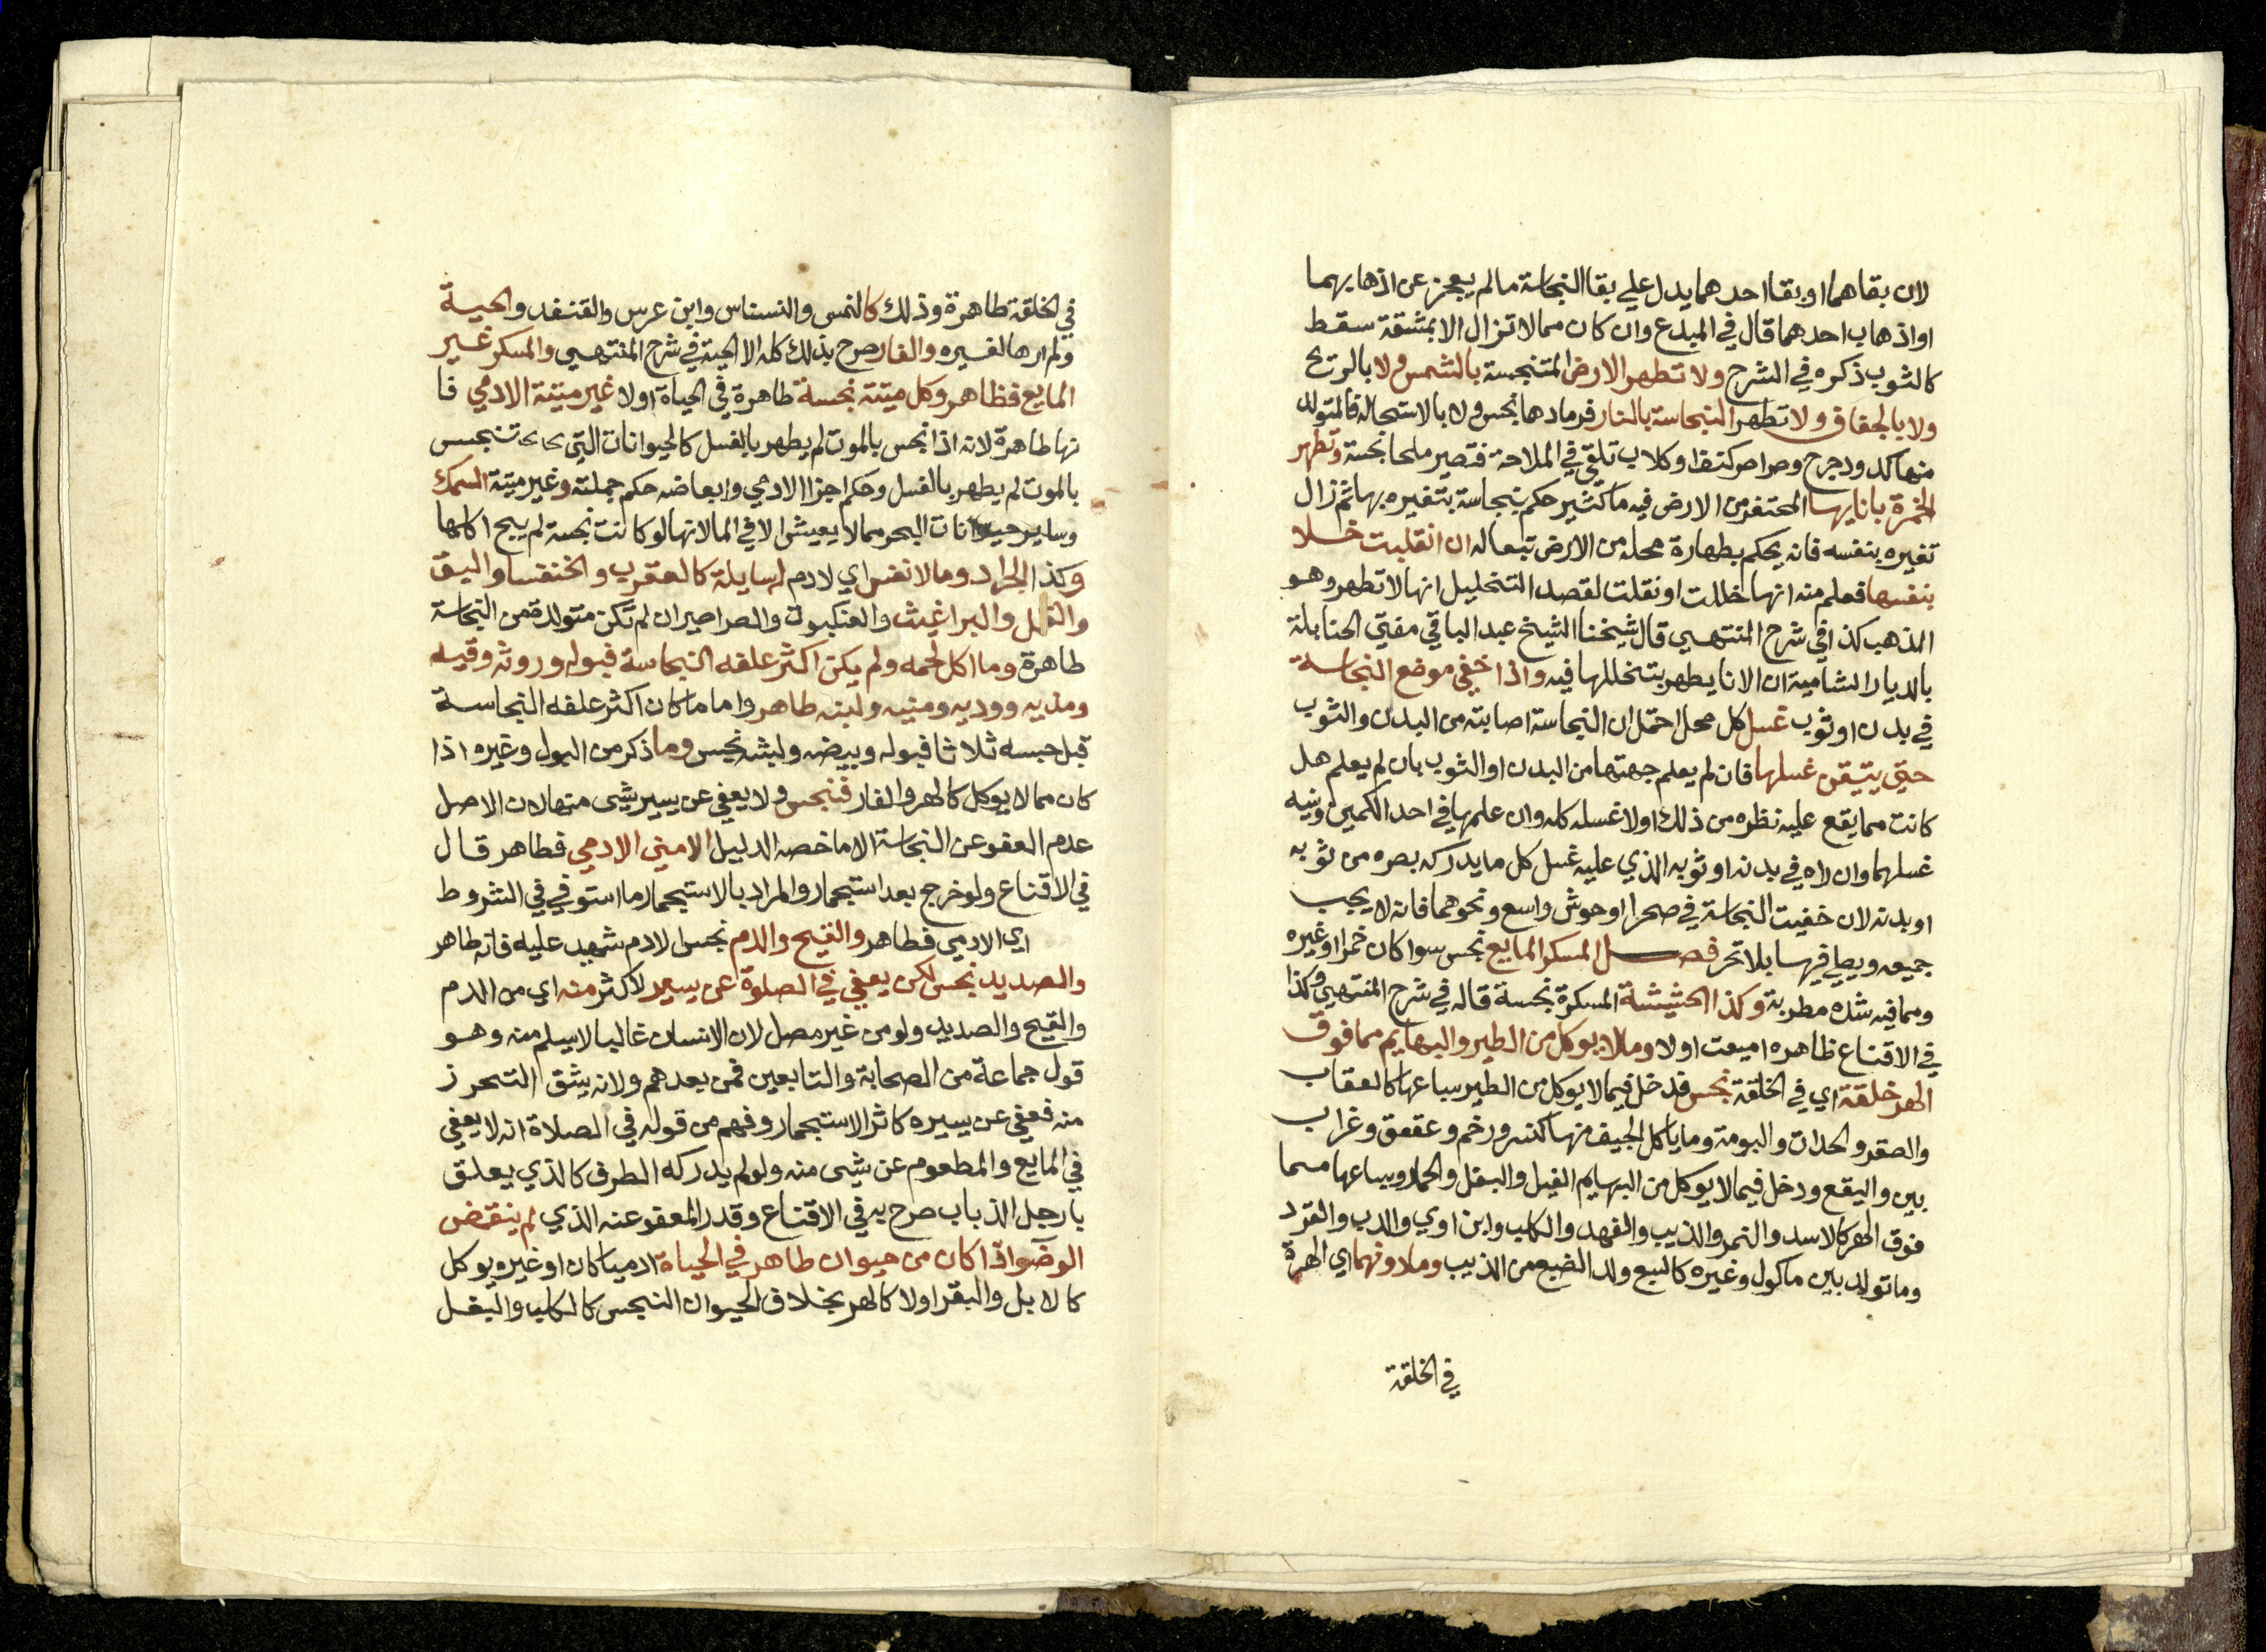 لان بقاهما او بقا احدهما يدل علي بقا النجاسة ما لم يعجز عن اذهابهما
او اذهاب احدهما قال في المبدع وان كان مما لا تزال الا بمشقة سقط
كالثوب ذكره في الشرح ولا تطهر الارض المتنجسة بالشمس ولا بالريح
ولا بالجفاف ولا تطهر النجاسة بالنار فرمادها نجس ولا بالاستحالة فالمتولد
منها كدود جرح وصراصر كنف او كلاب تلقي في الملاحة فتصير ملحا نجسة وتطهر
الخمرة بانايها المحتفر من الارض فيه ما كثير حكم بنجاسة بتغيره بها ثم زال
تغيره بنفسه فانه يحكم بطهارة محله من الارض تبعا له ان انقلبت خلا
بنفسها فعلم منه انها خللت او نقلت لقصد التخليل انها لا تطهر وهو
المذهب كذا في شرح المنتهي قال شيخنا الشيخ عبد الباقي مفتي الحنابلة
بالديار الشامية ان الانا يطهر بتخللها فيه واذا خفي موضع النجاسة
في بدن او ثوب غسل كل محل احتمل ان النجاسة اصابته من البدن والثوب
حتي يتيقن غسلها فان لم يعلم جهتها من البدن او الثوب بان لم يعلم هل
كانت مما يقع عليه نظره من ذلك او لا غسله كله وان علمها في احد الكمين ونيه
غسلهما وان راه في بدنه او ثوبه الذي عليه غسل كل ما يدركه بصره من ثوبه
او بدنه لان خفيت النجاسة في صحرا او حوش واسع ونحوهما فانه لا يجب
جميعه ويصلي فيها بلا تحر فصل المسكر المايع نجس سوا كان خمرا او غيره
ومما فيه شده مطربة وكذا الحشيشة المسكرة نجسة قاله في شرح المنتهي وكذا
في الاقناع ظاهره اميعت اولا وما لا يوكل من الطير والبهايم مما فوق
الهر خلقة اي في الخلقة نجس فدخل فيما لا يوكل من الطير سباعها كالعقاب
والصقر والحداة والبومة وما ياكل الجيف منها كنسر ورخم وعقعق وغراب
بين والبقع ودخل فيما لا يوكل من البهايم الفيل والبغل والحمار وسباعها مما
فوق الهر كالاسد والنمر والذيب والفهد والكلب وابن اوي والدب والقرد
وما تولد بين ماكول وغيره كالسبع ولد الضبع من الذيب وما دونهما اي الهرة
في الخلقة
في الخلقة طاهرة وذلك كالنمس والنسناس وابن عرس والقنفد والحية
ولم ارها لغيره والفار صرح بذلك كله الا الحية في شرح المنتهي والمسكر غير
المايع فظاهر وكل ميتة نجسة طاهرة في الحياة او لا غير ميتة الادمي فا
نها طاهرة لانه اذا نجس بالموت لم يطهر بالغسل كالحيوانات التي تنجس
بالموت لم يطهر بالغسل وحكم اجزا الادمي وابعاضه حكم جملته وغير ميتة السمك
وساير حيوانات البحر مما لا يعيش الا في الما لانها لو كانت نجسة لم يبح اكلها
وكذا الجراد وما لا نفس اي لا دم له سايلة كالعقرب والخنفسا والبق
والقمل والبراغيث والعنكبوت والصراصير ان لم تكن متولدة من النجاسة
طاهرة وما اكل لحمه ولم يكن اكثر علفه النجاسة فبوله وروثه وقيه
ومذيه ووديه ومنيه ولبنه طاهر واما ما كان اكثر علفه النجاسة
قبل حبسه ثلاثا فبوله وبيضه ولبنه نجس وما ذكر من البول وغيره اذا
كان مما لا يوكل كالهر والفار فنجس ولا يعفي عن يسير شي منها لان الاصل
عدم العفو عن النجاسة الا ما خصه الدليل الا مني الادمي فطاهر قال
في الاقناع ولو خرج بعد استجمار والمراد بالاستجمار ما استوفي في الشروط
اي الادمي فطاهر والقيح والدم نجس الا دم شهيد عليه فانه طاهر
والصديد نجس لكن يعفي في الصلوة عن يسير لا كثر منه اي من الدم
والقيح والصديد ولو من غير مصل لان الانسان غالبا لا يسلم منه وهو
قول جماعة من الصحابة والتابعين فمن بعدهم ولانه يشق التحرز
منه فعفي عن يسيره كاثر الاستجمار وفهم من قوله في الصلاة انه لا يعفي
في المايع والمطعوم عن شي منه ولو لم يدركه الطرف كالذي يعلق
بارجل الذباب صرح به في الاقناع وقدر المعفو عنه الذي لم ينقض
الوضو اذا كان من حيوان طاهر في الحياة ادميا كان او غيره يوكل
كالابل والبقر او لا كالهر بخلاف الحيوان النجس كالكلب والبغل